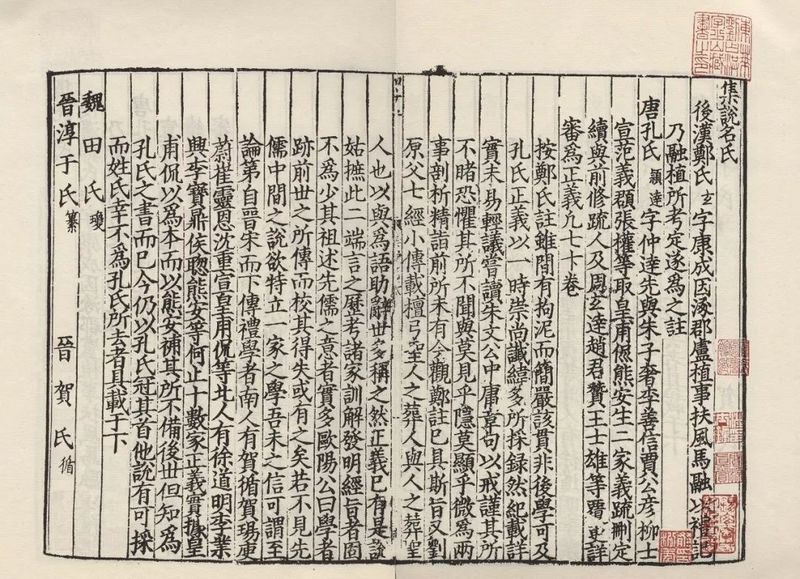 集說名氏
後漢鄭氏玄字康成因涿郡盧植事扶風馬融以禮記
乃融植所考定遂為之註
唐孔氏穎達字仲達先與朱子奢李善信賈公彥柳士
宣范義頵張權等取皇甫侃熊安生二家義疏刪定
續與前修疏人及周玄達趙君贊王士雄等覆更詳
審為正義凡七十卷
按鄭氏註雖間有拘泥而簡嚴該貫非後學可及
孔氏正義以一時崇尚讖緯多所採録然紀載詳
實未易輕議嘗讀朱文公中庸章句以戒謹其所
不睹恐懼其所不聞與莫見乎隱莫顯乎微為兩
事剖析精詣前所未有今觀鄭註已具斯旨又劉
原父七經小傳載檀弓聖人之葬人與人之葬聖
人也以與為語助辭世多稱之然正義已有是說
姑摭此二端言之歷考諸家訓解發明經旨者固
不為少其祖述先儒之意者實多歐陽公曰學者
跡前世之所傳而校其得失或有之矣若不見先
儒中間之說欲特立一家之學吾未之信可謂至
論第自晉宋而下傳禮學者南人有賀循賀瑒庾
蔚崔靈恩沈重宣皇甫侃等北人有徐道明李業
興李寶鼎侯聰熊安等何止十數家正義實據皇
甫侃以為本而以熊安補其所不備後世但知為
孔氏之書而已今仍以孔氏冠其首他說有可採
而姓氏幸不為孔氏所去者具載于下
魏田氏瓊
晉淳于氏纂 晉賀氏循